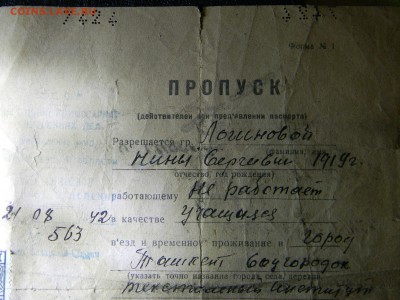 Форма № 1
ПРОПУСК
(действителен при предъявлении паспорта)
Разрешается гр. Логиновой
(фамилия, имя,
Нины Сергеевны 1919 г.
отчество, год рождения)
работающему Не работает
21 08 42 в качестве учащаяся
563
въезд и временное проживание в город
Ташкент Соцгородок
(указать точно название города, села, района,
текстильный институт